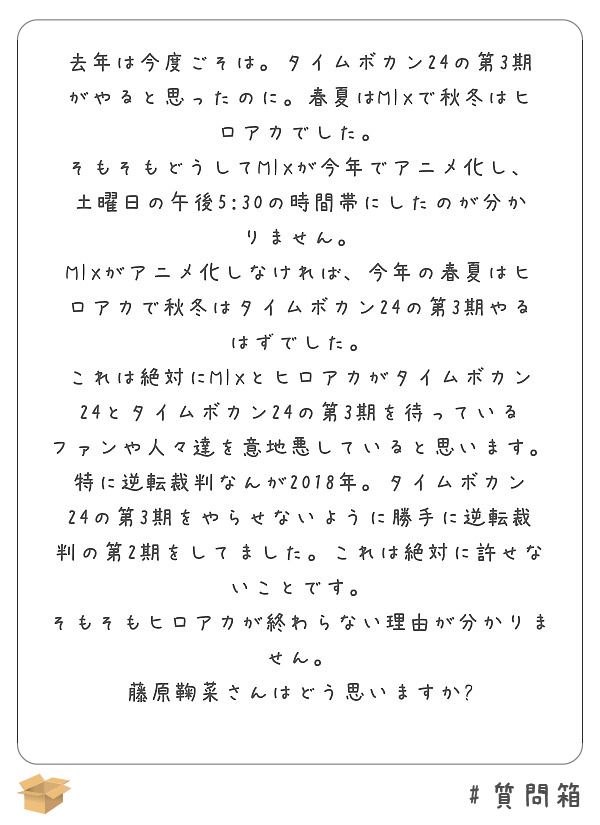 去年は今度ごそは。タイムボカン24の第3期
がやると思ったのに。春夏はMIxで秋冬はヒ
ロアカでした。
そもそもどうしてMIxが今年でアニメ化し、
土曜日の午後5:30の時間帯にしたのが分か
りません。
MIxがアニメ化しなければ、今年の春夏はヒ
ロアカで秋冬はタイムボカン24の第3期やる
はずでした。
これは絶対にMIxとヒロアカがタイムボカン
24とタイムボカン24の第3期を待っている
ファンや人々達を意地悪していると思います。
特に逆転裁判なんが2018年。タイムボカン
24の第3期をやらせないように勝手に逆転裁
判の第2期をしてました。これは絶対に許せな
いことです。
そもそもヒロアカが終わらない理由が分かりま
せん。
藤原鞠菜さんはどう思いますか?
#質問箱